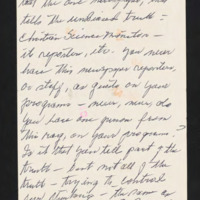 that the one newspaper, who
tells the undiluted truth -
Christian Science Monitor -
its reporters, etc. You never
have this newspaper reporters,
or staff, as guests on your
programs - never, never, do
you have one person from
this mag, on your programs?
Is it that you tell part of the
truth - but not all of the
truth - trying to control
our thinking - the same as